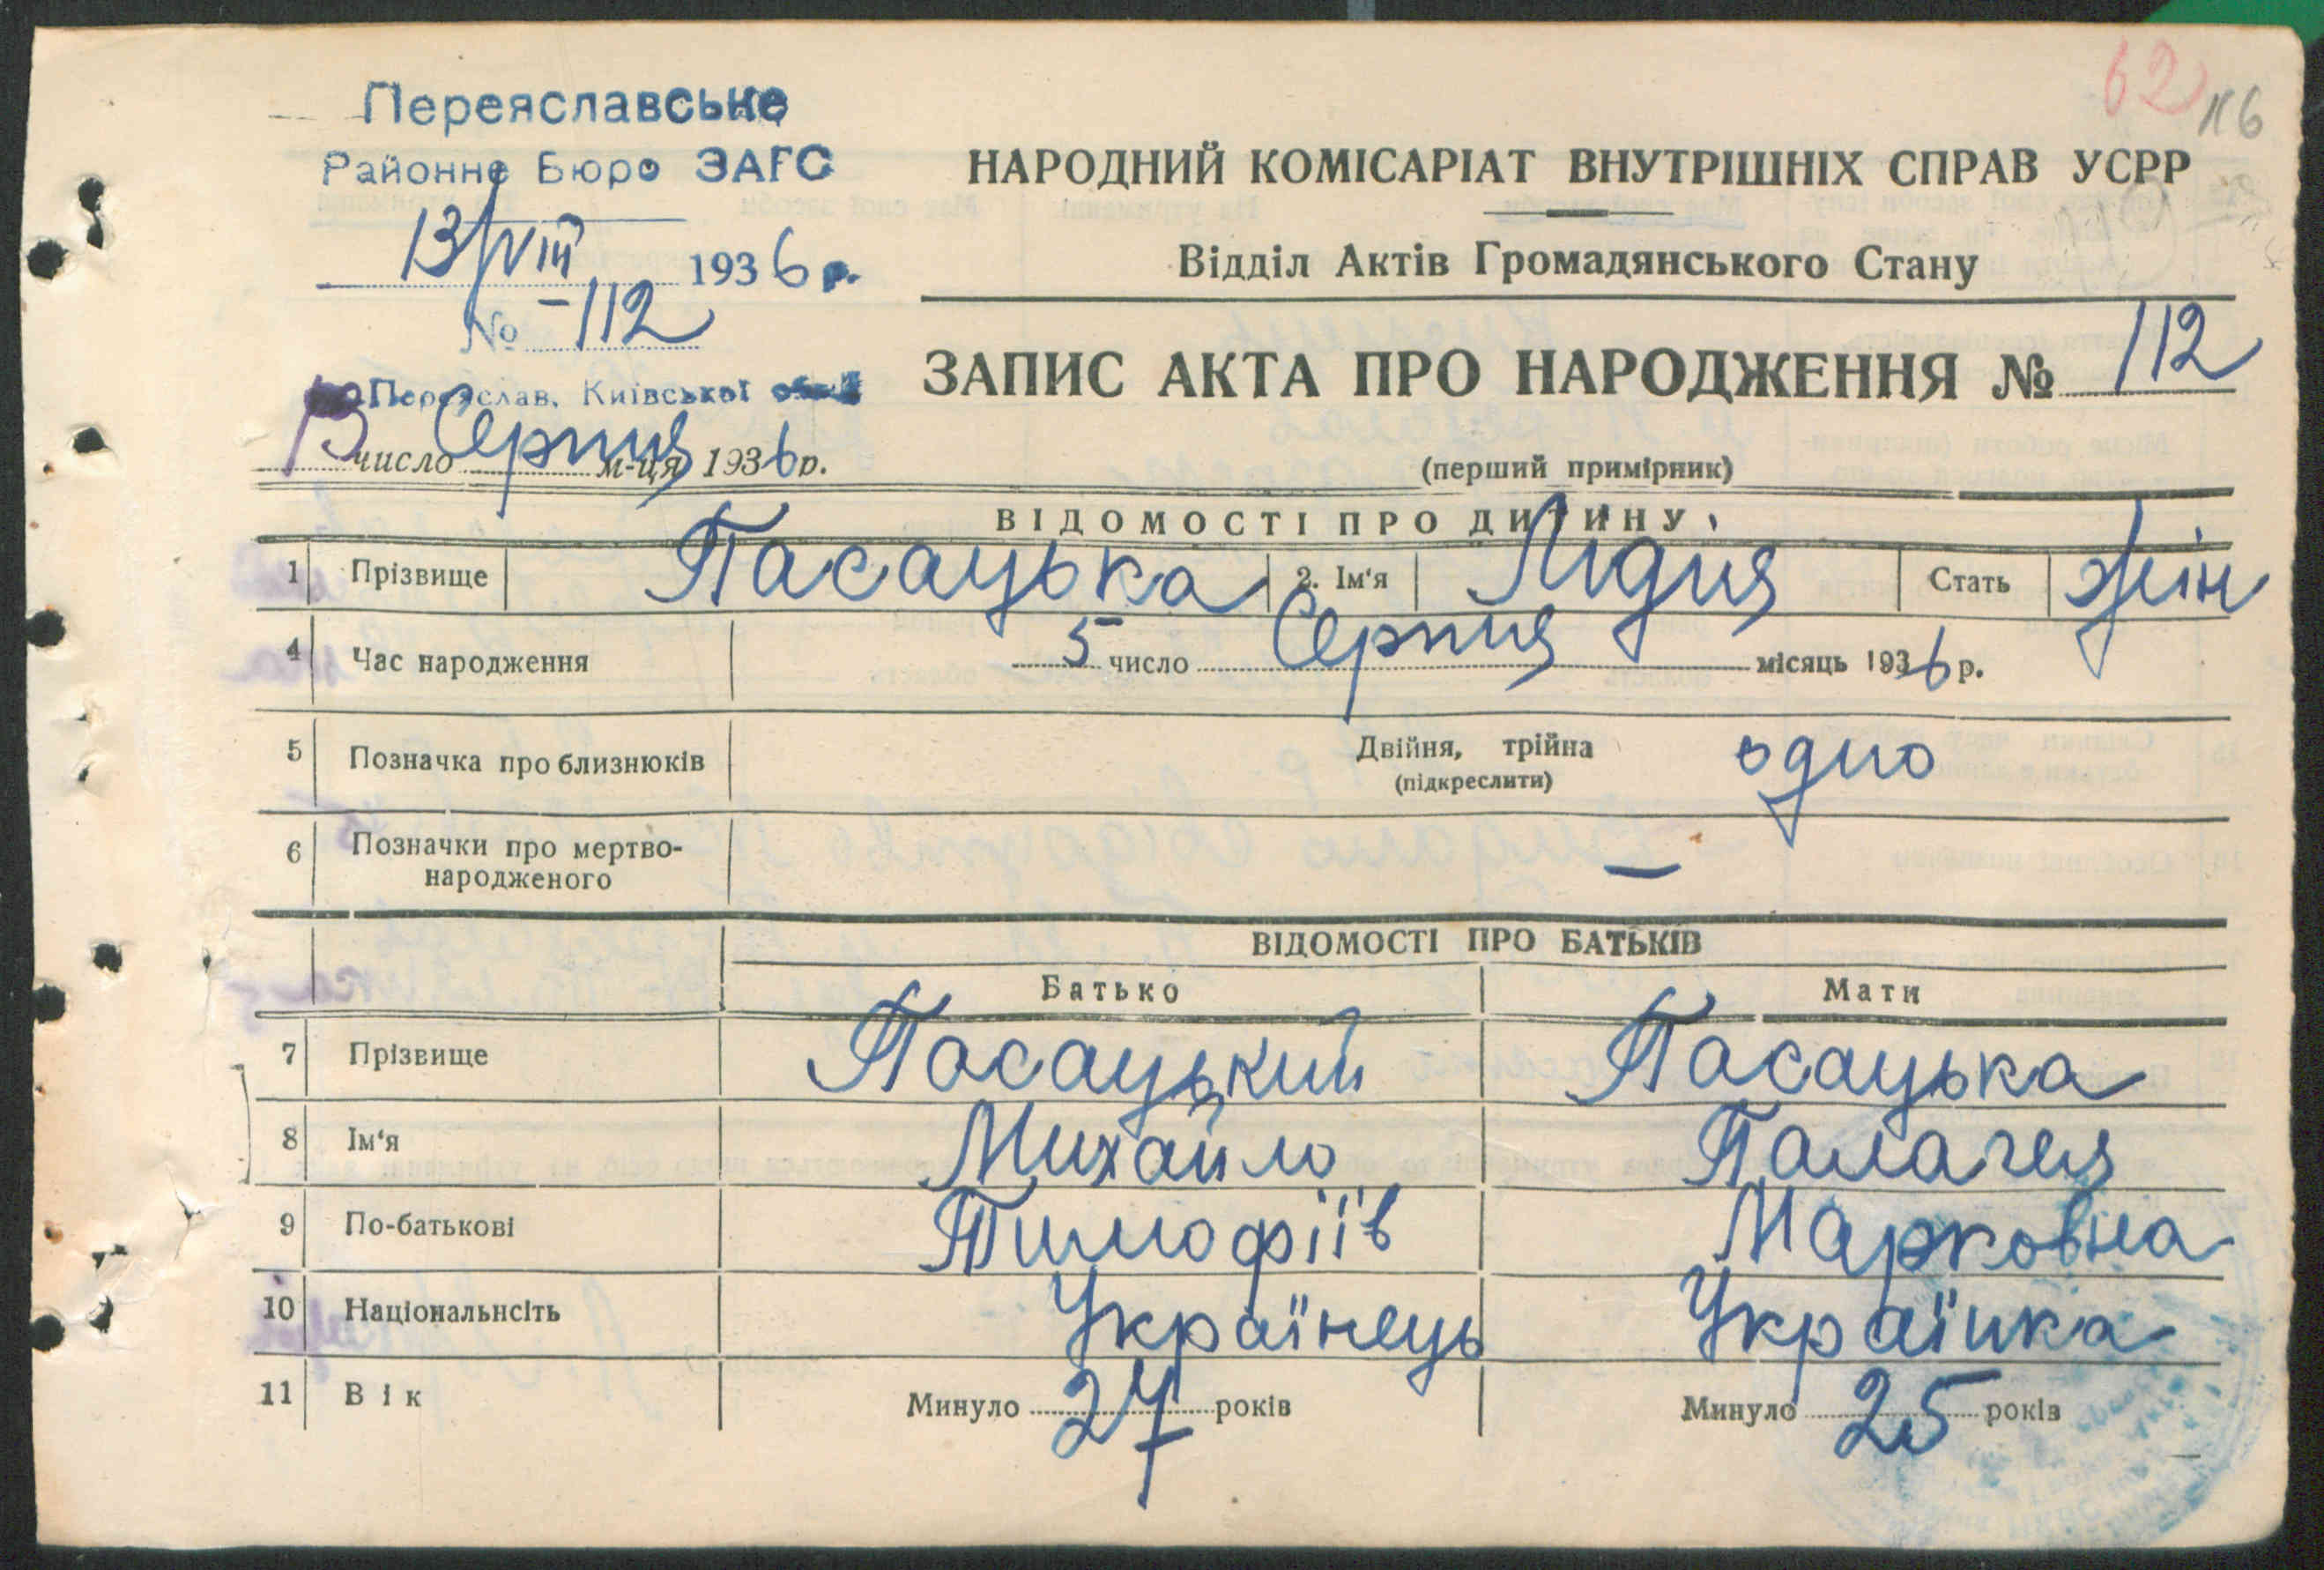 62
116
Переяславське
Районне Бюро ЗАГС
13/VIII 1936 р.
№ -112
Переяслав, Київської
13 число Серпня м-ця 1936 р.
НАРОДНИЙ КОМІСАРІАТ ВНУТРІШНІХ СПРАВ УСРР
Відділ Актів Громадянського Стану
ЗАПИС АКТА ПРО НАРОДЖЕННЯ № 112
(перший примірник)
ВІДОМОСТІ ПРО ДИТИНУ
1 Прізвище Пасацька 2. Ім'я Лідия Стать жін
4 Час народження 5 число Серпня місяць 1936 р.
5 Позначка про близнюків Двійня, трійна одно
(підкреслити)
6 Позначки про мертво-
народженого —
ВІДОМОСТІ ПРО БАТЬКІВ
Батько Мати
7 Прізвище Пасацький Пасацька
8 Ім'я Михайло Палагея
9 По-батькові Тимофіїв Марковна
10 Національнсіть Українець Українка
11 Вік Минуло 27 років Минуло 25 років